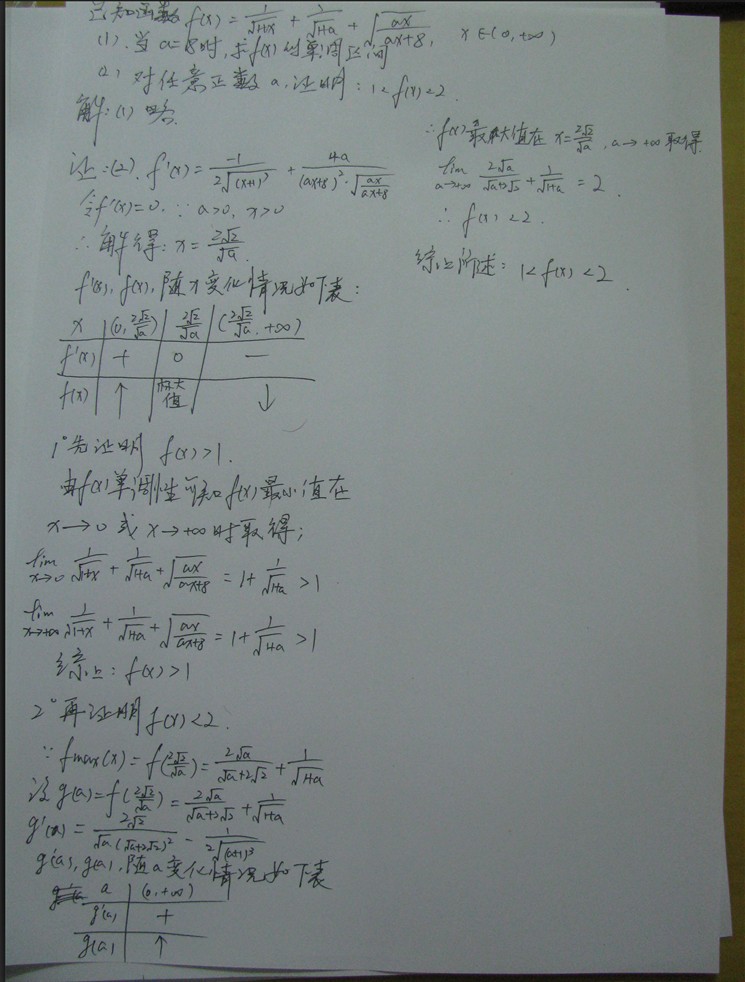 已知函数 f(x) = 1/√(1+x) + 1/√(1+a) + √(ax/(ax+8)), x∈(0,+∞)
(1). 当a=8时,求f(x)的单调区间
(2) 对任意正数a,证明:1<f(x)<2.
解:(1) 略.
证:(2). f'(x) = -1/(2√((x+1)³)) + 4a/((ax+8)²·√(ax/(ax+8)))
令f'(x)=0. ∵ a>0, x>0
∴解得:x = 2√2/√a.
f'(x), f(x), 随x变化情况如下表:
x | (0, 2√2/√a) | 2√2/√a | (2√2/√a, +∞)
f'(x) | + | 0 | —
f(x) | ↑ | 极大值 | ↓
1° 先证明 f(x)>1.
由f(x)单调性可知f(x)最小值在
x→0 或 x→+∞时取得;
lim x→0 1/√(1+x) + 1/√(1+a) + √(ax/(ax+8)) = 1 + 1/√(1+a) >1
lim x→+∞ 1/√(1+x) + 1/√(1+a) + √(ax/(ax+8)) = 1 + 1/√(1+a) >1
综上:f(x)>1
2° 再证明f(x)<2.
∵ fmax(x) = f(2√2/√a) = 2√a/(√a+2√2) + 1/√(1+a)
设g(a) = f(2√2/√a) = 2√a/(√a+2√2) + 1/√(1+a)
g'(a) = 2√2/(√a(√a+2√2)²) - 1/(2√((a+1)³))
g'(a), g(a), 随a变化情况如下表
a | (0,+∞)
g'(a) | +
g(a) | ↑
∴f(x)最大值在 x=2√2/√a, a→+∞取得.
lim a→+∞ 2√a/(√a+2√2) + 1/√(1+a) = 2.
∴ f(x)<2.
综上所述:1<f(x)<2.